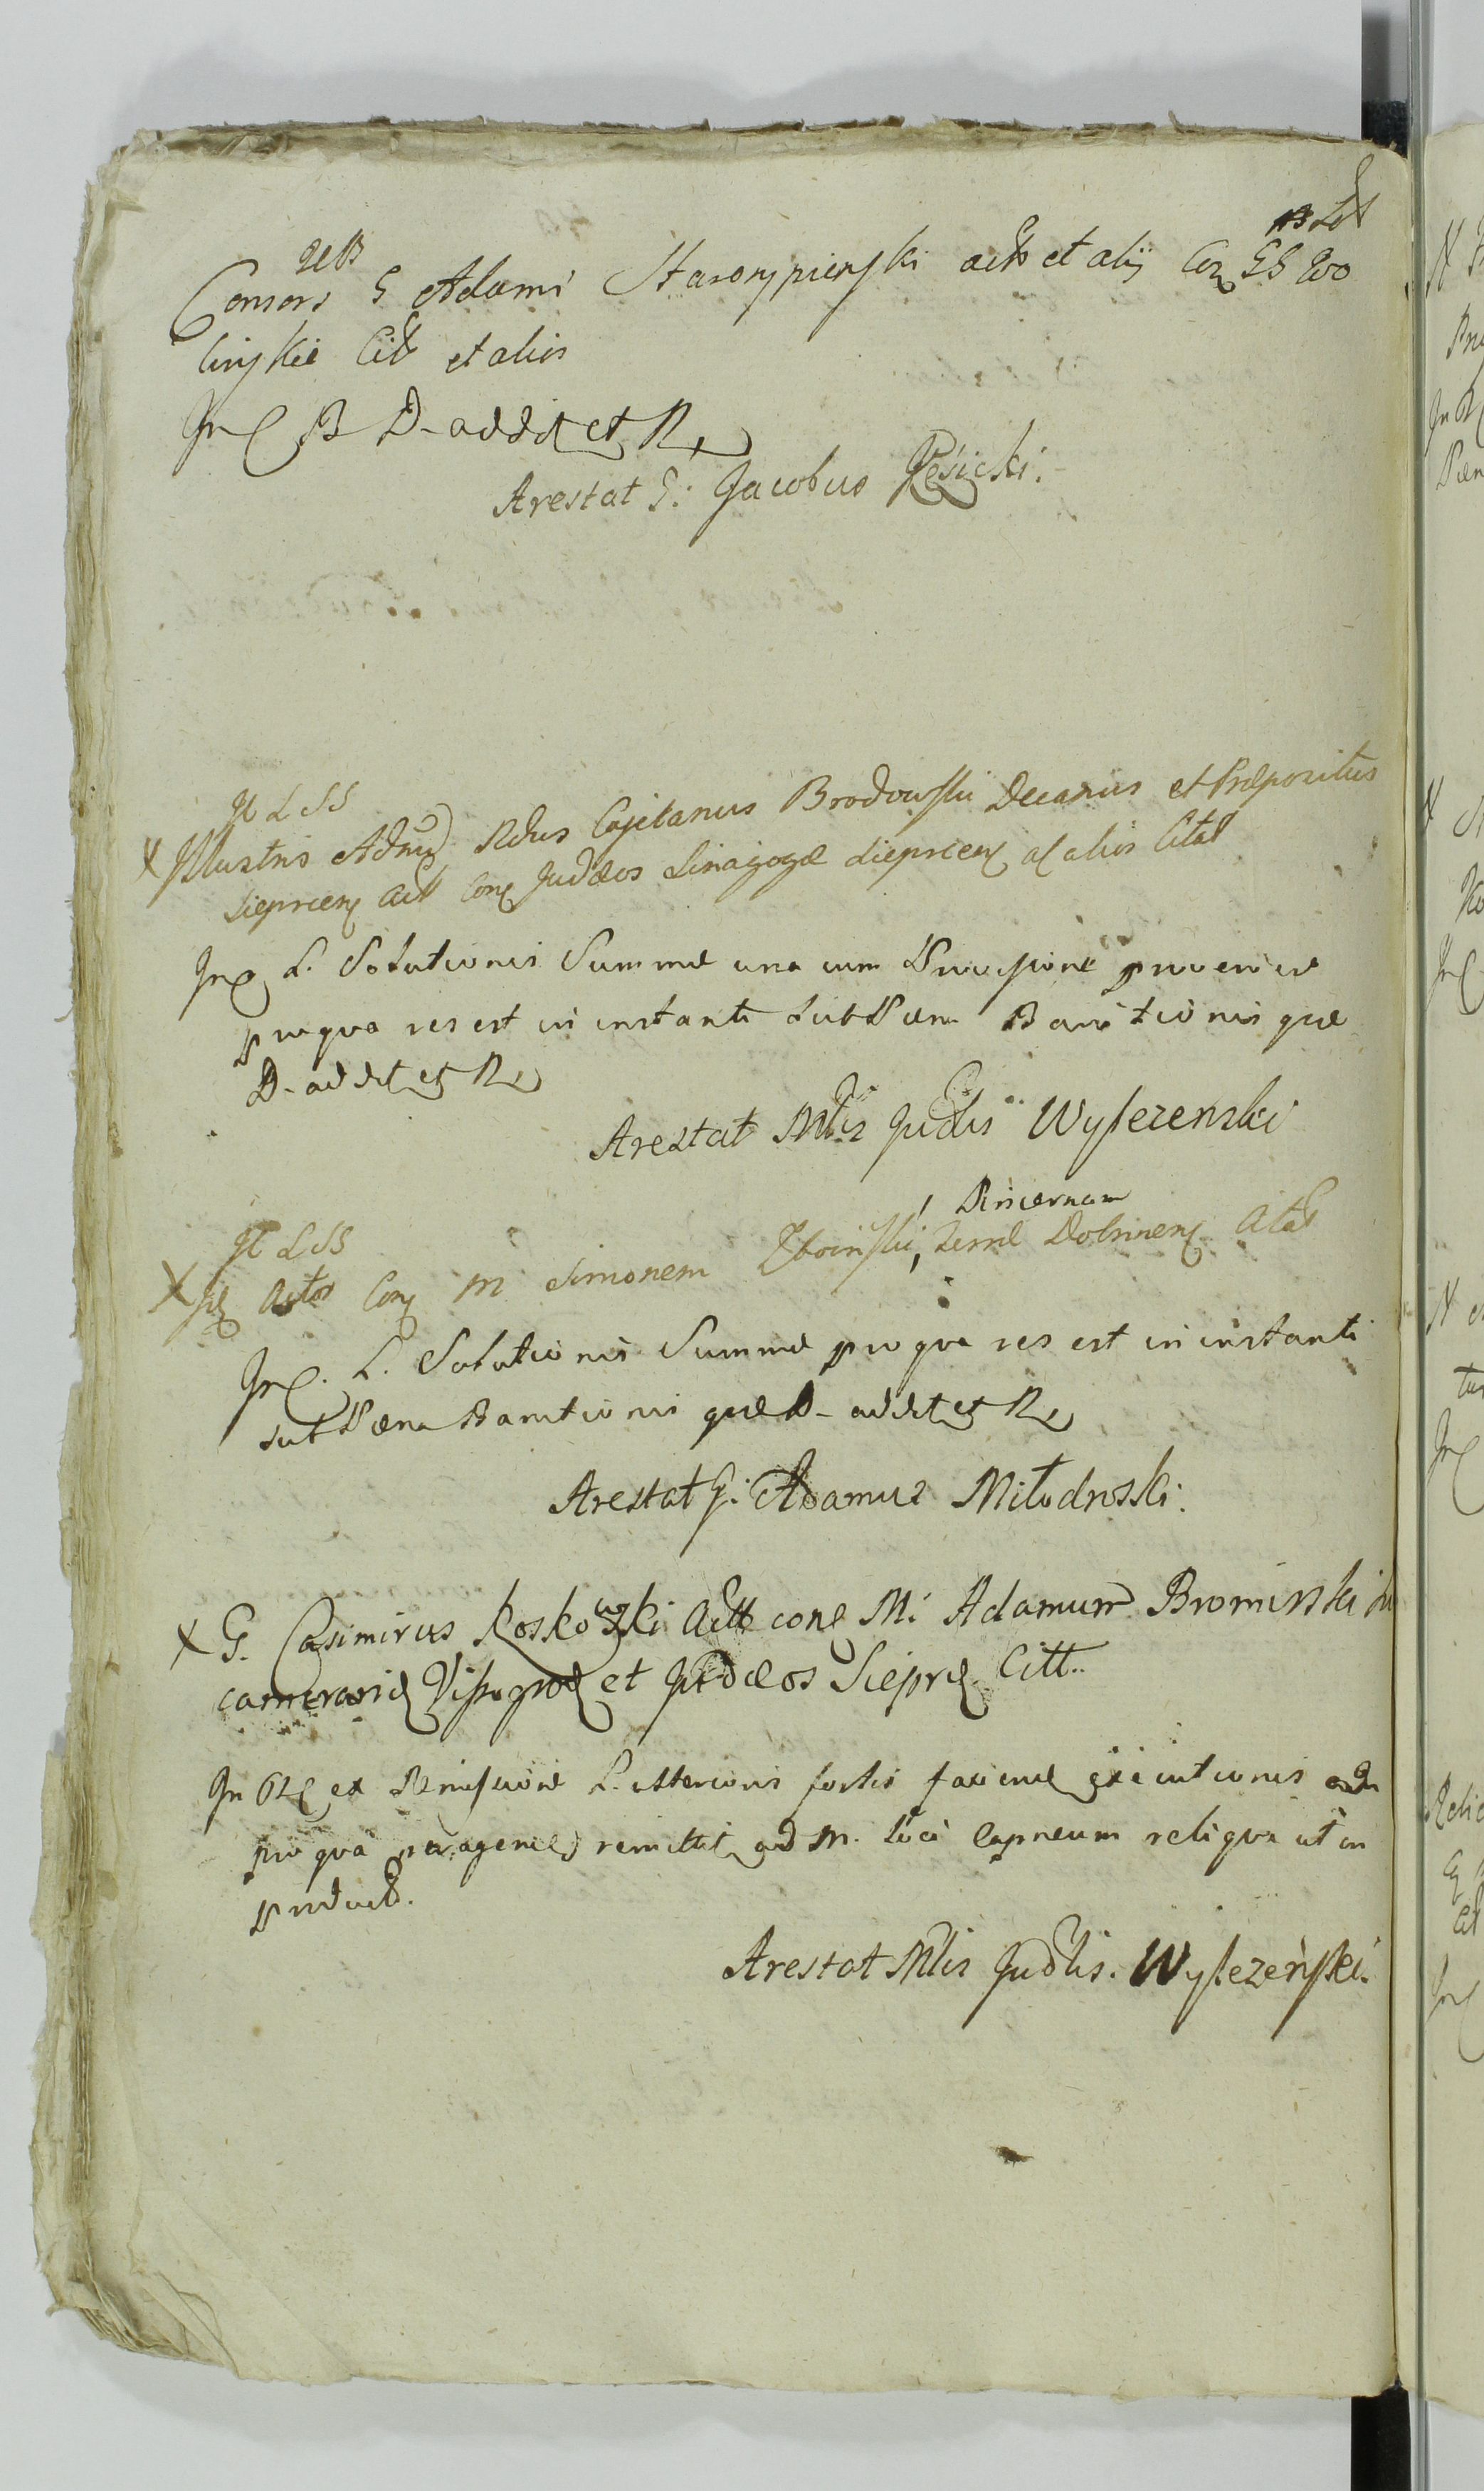 Consors G Adami Starozypienski act et alij Con GG Wo
linskie Cit et alios
In C B D. addit et R
Arestat G: Jacobus Kęsicki.
It L SS
X Illustris Adm Rdus Cajetanus Brodowski Decanus et Præpositus
Sieprcen act Con Judæos Sinagogæ Sieprcen al alios Citat
In C L. Solutionis Summæ una cum Provisione proveniee
pro qua res est in instanti sub Pæna Banitionis quæ
D. addit et R
Arestat Mtis Judlis Wyłezenski
It L SS
Pincernam
X Id Actor Con M Simonem Zboinski, Terræ Dobrinen Citat
In C. L. Solutionis Summæ pro qua res est in instanti
sub Pæna Banitionis quæ D. addit et R
Arestat G: Adamus Miłodroski.
X G. Casimirus Koskowski Actt con M: Adamum Bromirski Su
camerarie Vissogrod et Judæos Siepre Citt..
In C ex Remissione L. alterius fortis faciene executionis
pro qua peragene remittit ad M. loci Capneum reliqua ut in
product.
Arestat Mtis Judlis. Wyłezeński.